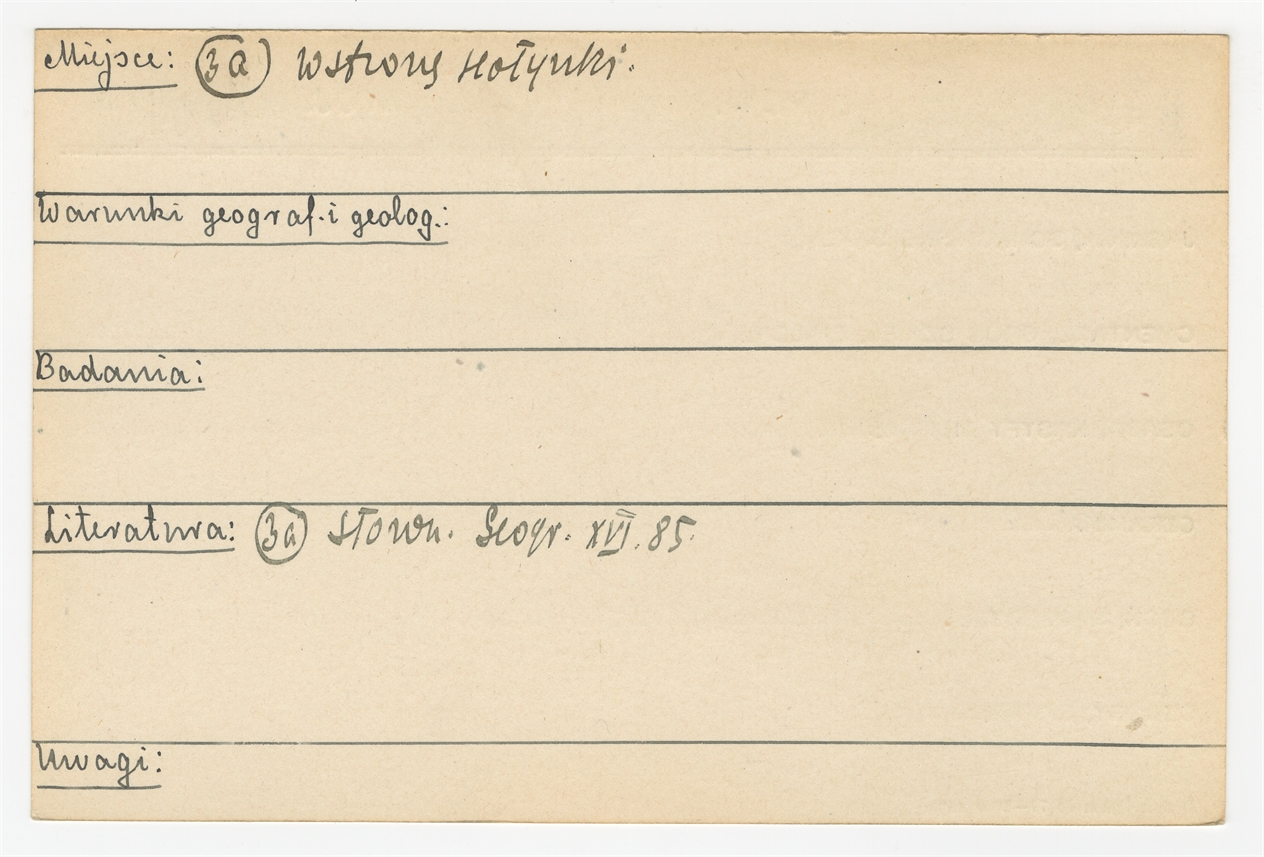 Miejsce: 3a W stronę Hołynki.
Warunki geograf. i geolog.:
Badania:
Literatura: 3a Słown. Geogr. XVI. 85.
Uwagi: